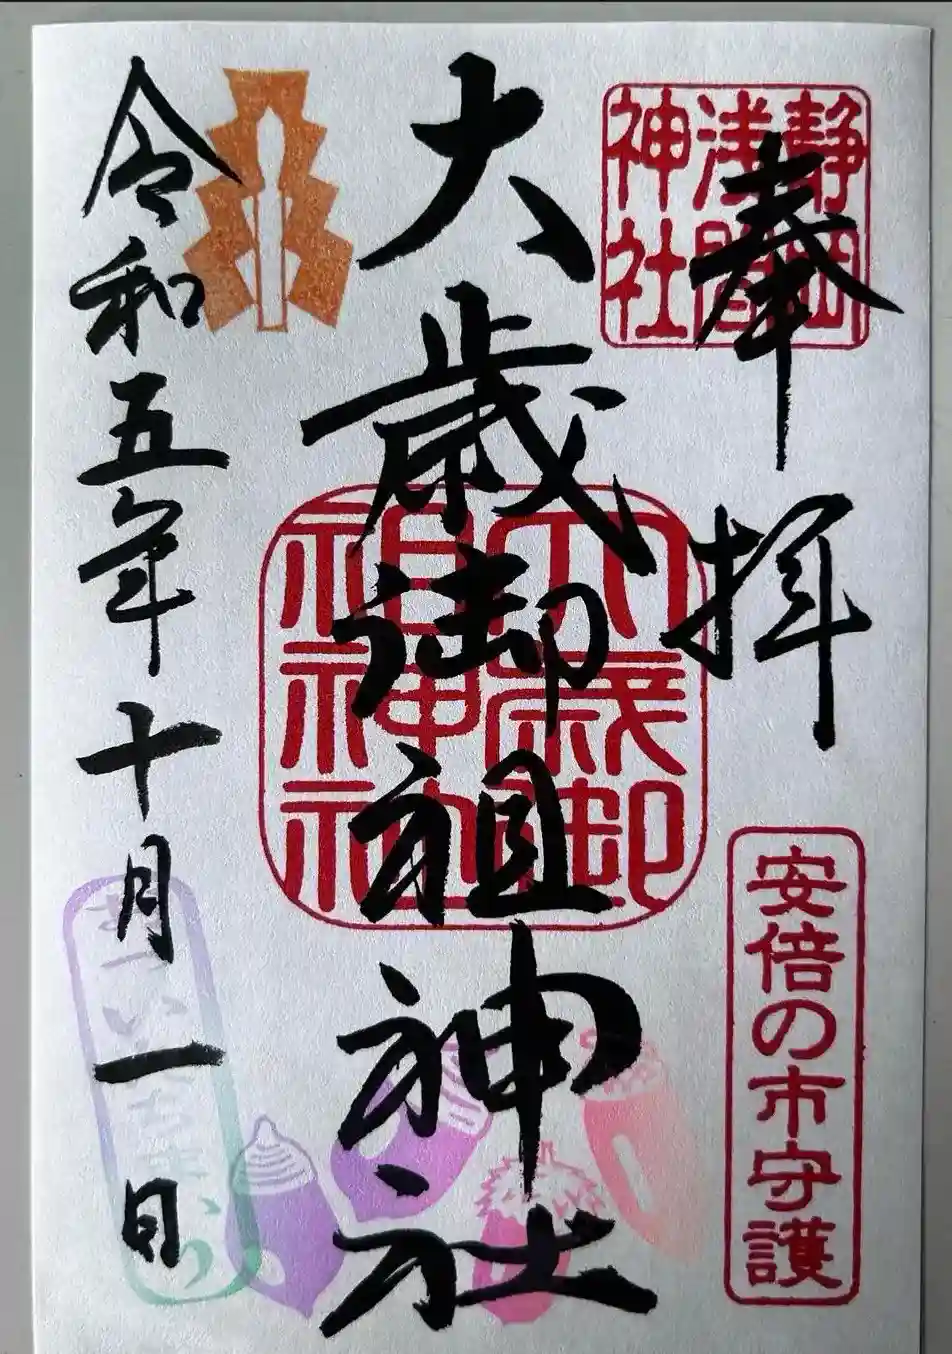 奉拝
静岡
浅間
神社
安倍の市守護
大歳御祖神社
大歳御
祖神社
令和五年十月一日